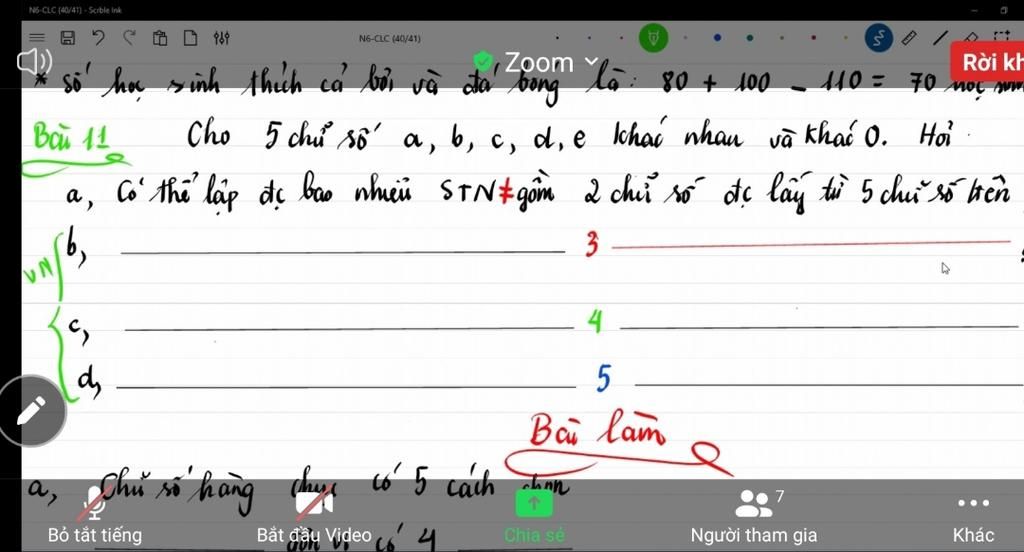 N6-CLC (40/41) - Scrble Ink
N6-CLC (40/41)
Zoom
Rời kh
* số học sinh thích cả bơi và đá bóng là: 80 + 100 - 110 = 70 học sinh
Bài 11 Cho 5 chữ số a, b, c, d, e khác nhau và khác 0. Hỏi
a, Có thể lập đc bao nhiêu STN ≠ gồm 2 chữ số đc lấy từ 5 chữ số trên
b, 3
VN
c, 4
d, 5
Bài làm
a, Chữ số hàng chục có 5 cách chọn
đơn vị có 4
Bỏ tắt tiếng
Bắt đầu Video
Chia sẻ
7
Người tham gia
Khác